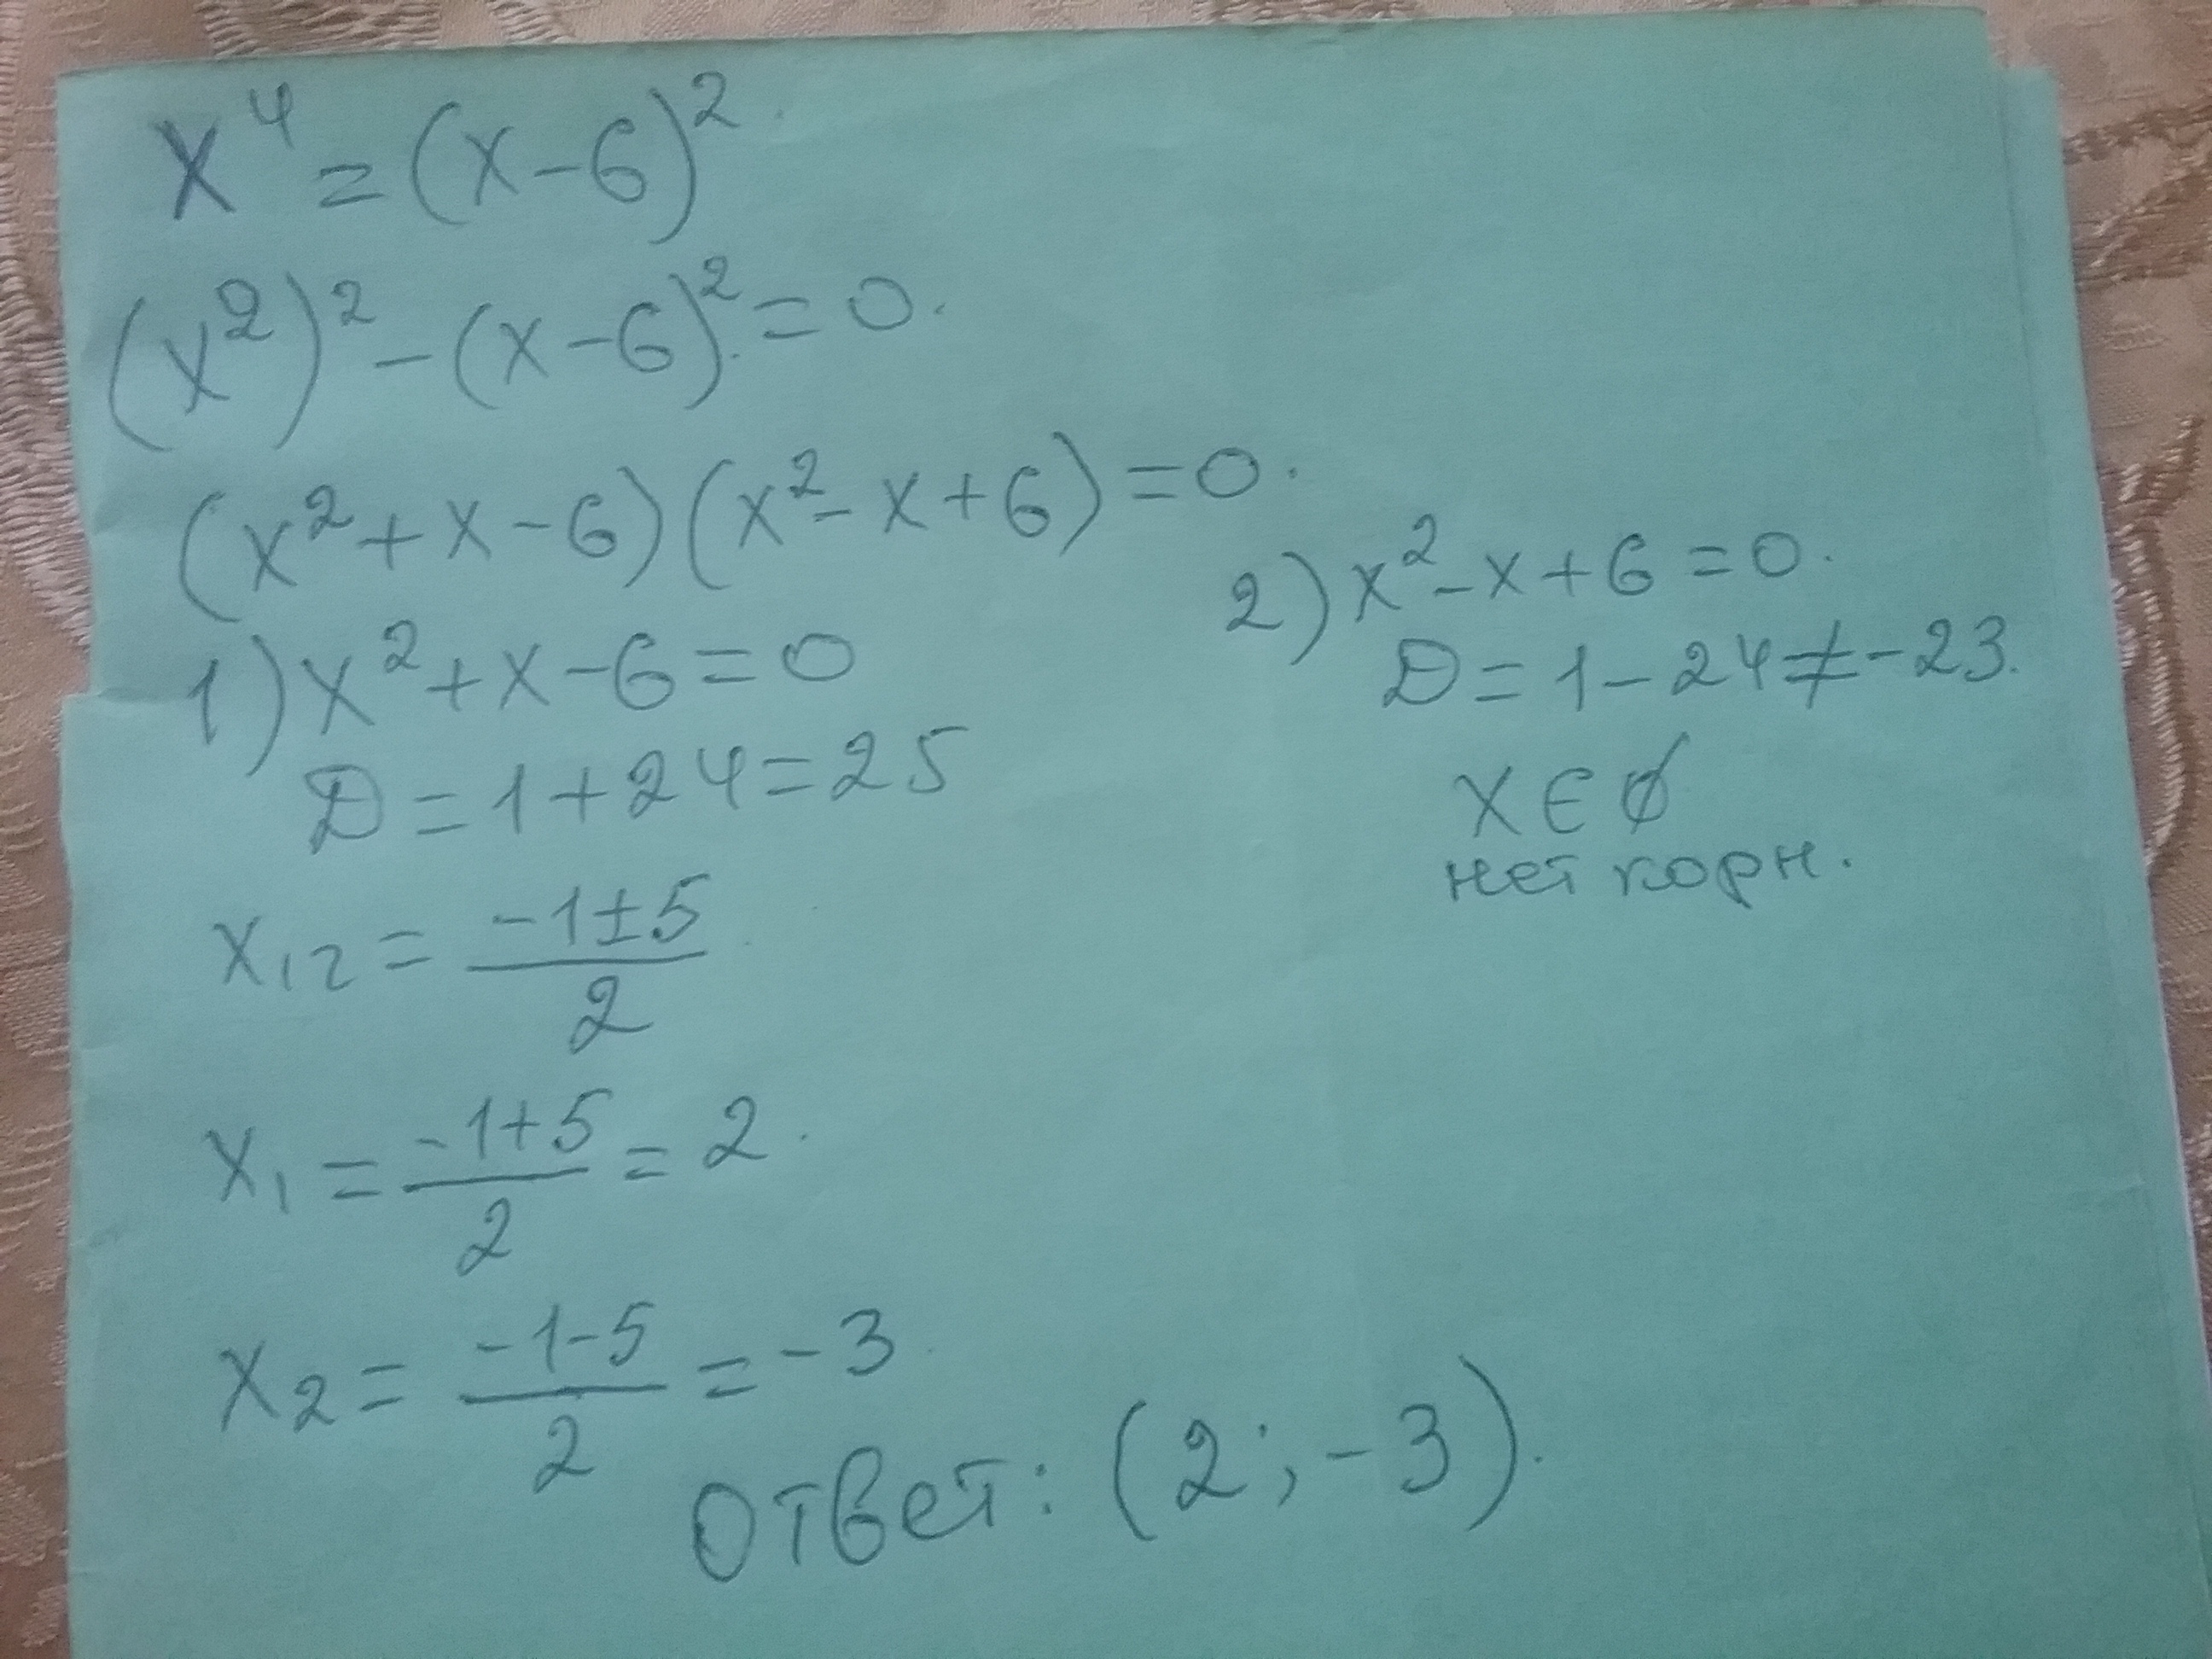 x⁴ = (x-6)².
(x²)² - (x-6)² = 0.
(x² + x - 6)(x² - x + 6) = 0.
1) x² + x - 6 = 0
D = 1 + 24 = 25
x₁₂ = (-1±5)/2
x₁ = (-1+5)/2 = 2.
x₂ = (-1-5)/2 = -3
2) x² - x + 6 = 0.
D = 1 - 24 ≠ -23.
x ∈ ∅
нет корн.
Ответ: (2; -3).